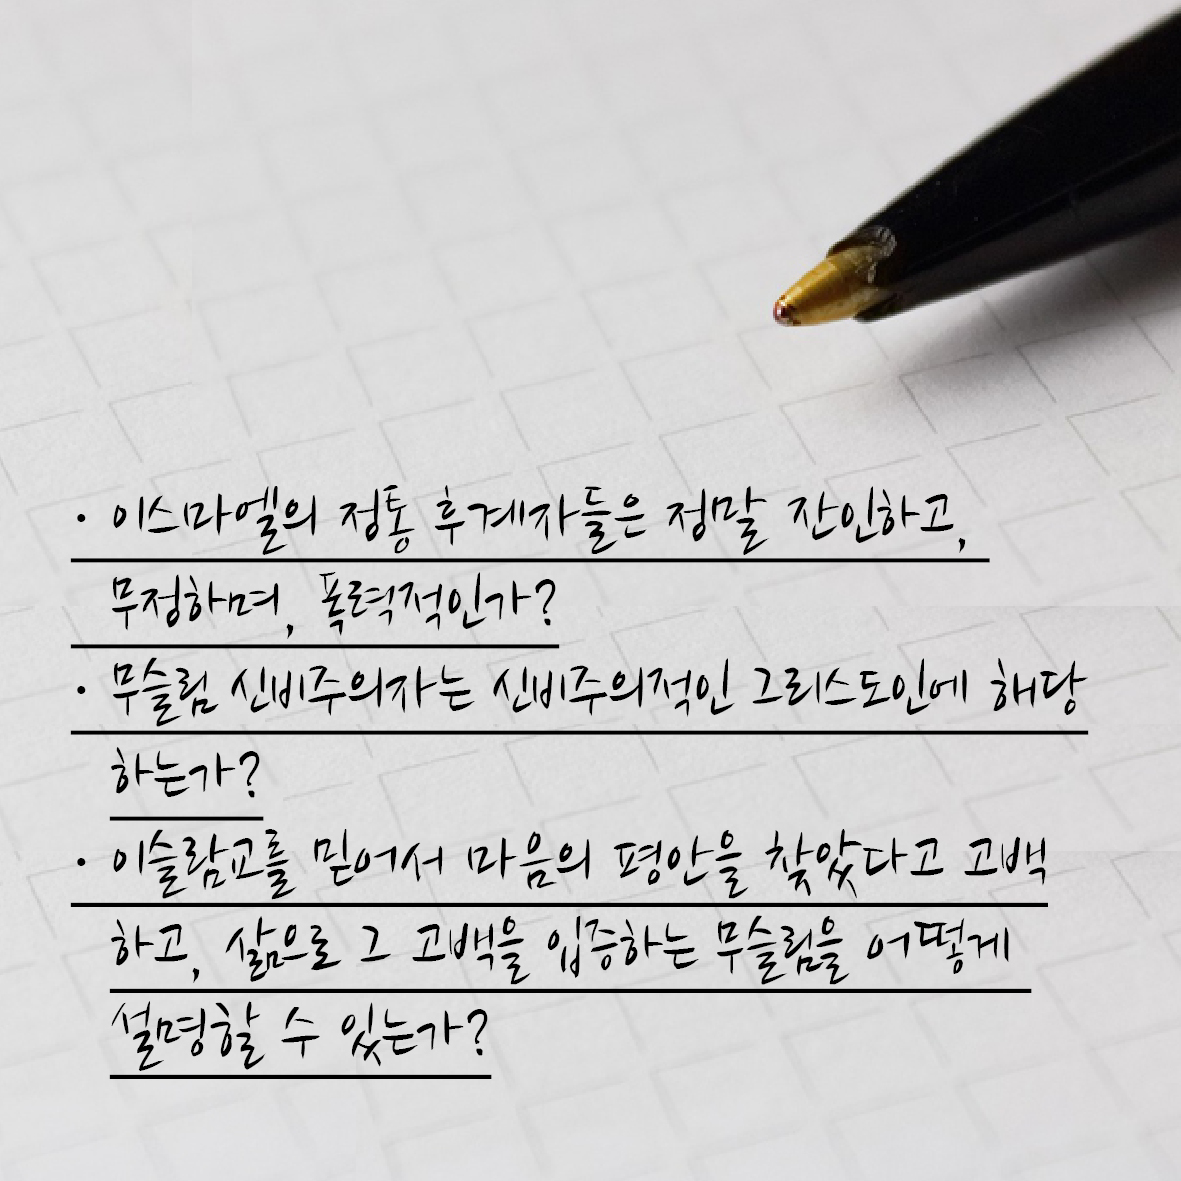 · 이스마엘의 정통 후계자들은 정말 잔인하고,
무정하며, 폭력적인가?
· 무슬림 신비주의자는 신비주의적인 그리스도인에 해당
하는가?
· 이슬람교를 믿어서 마음의 평안을 찾았다고 고백
하고, 삶으로 그 고백을 입증하는 무슬림을 어떻게
설명할 수 있는가?